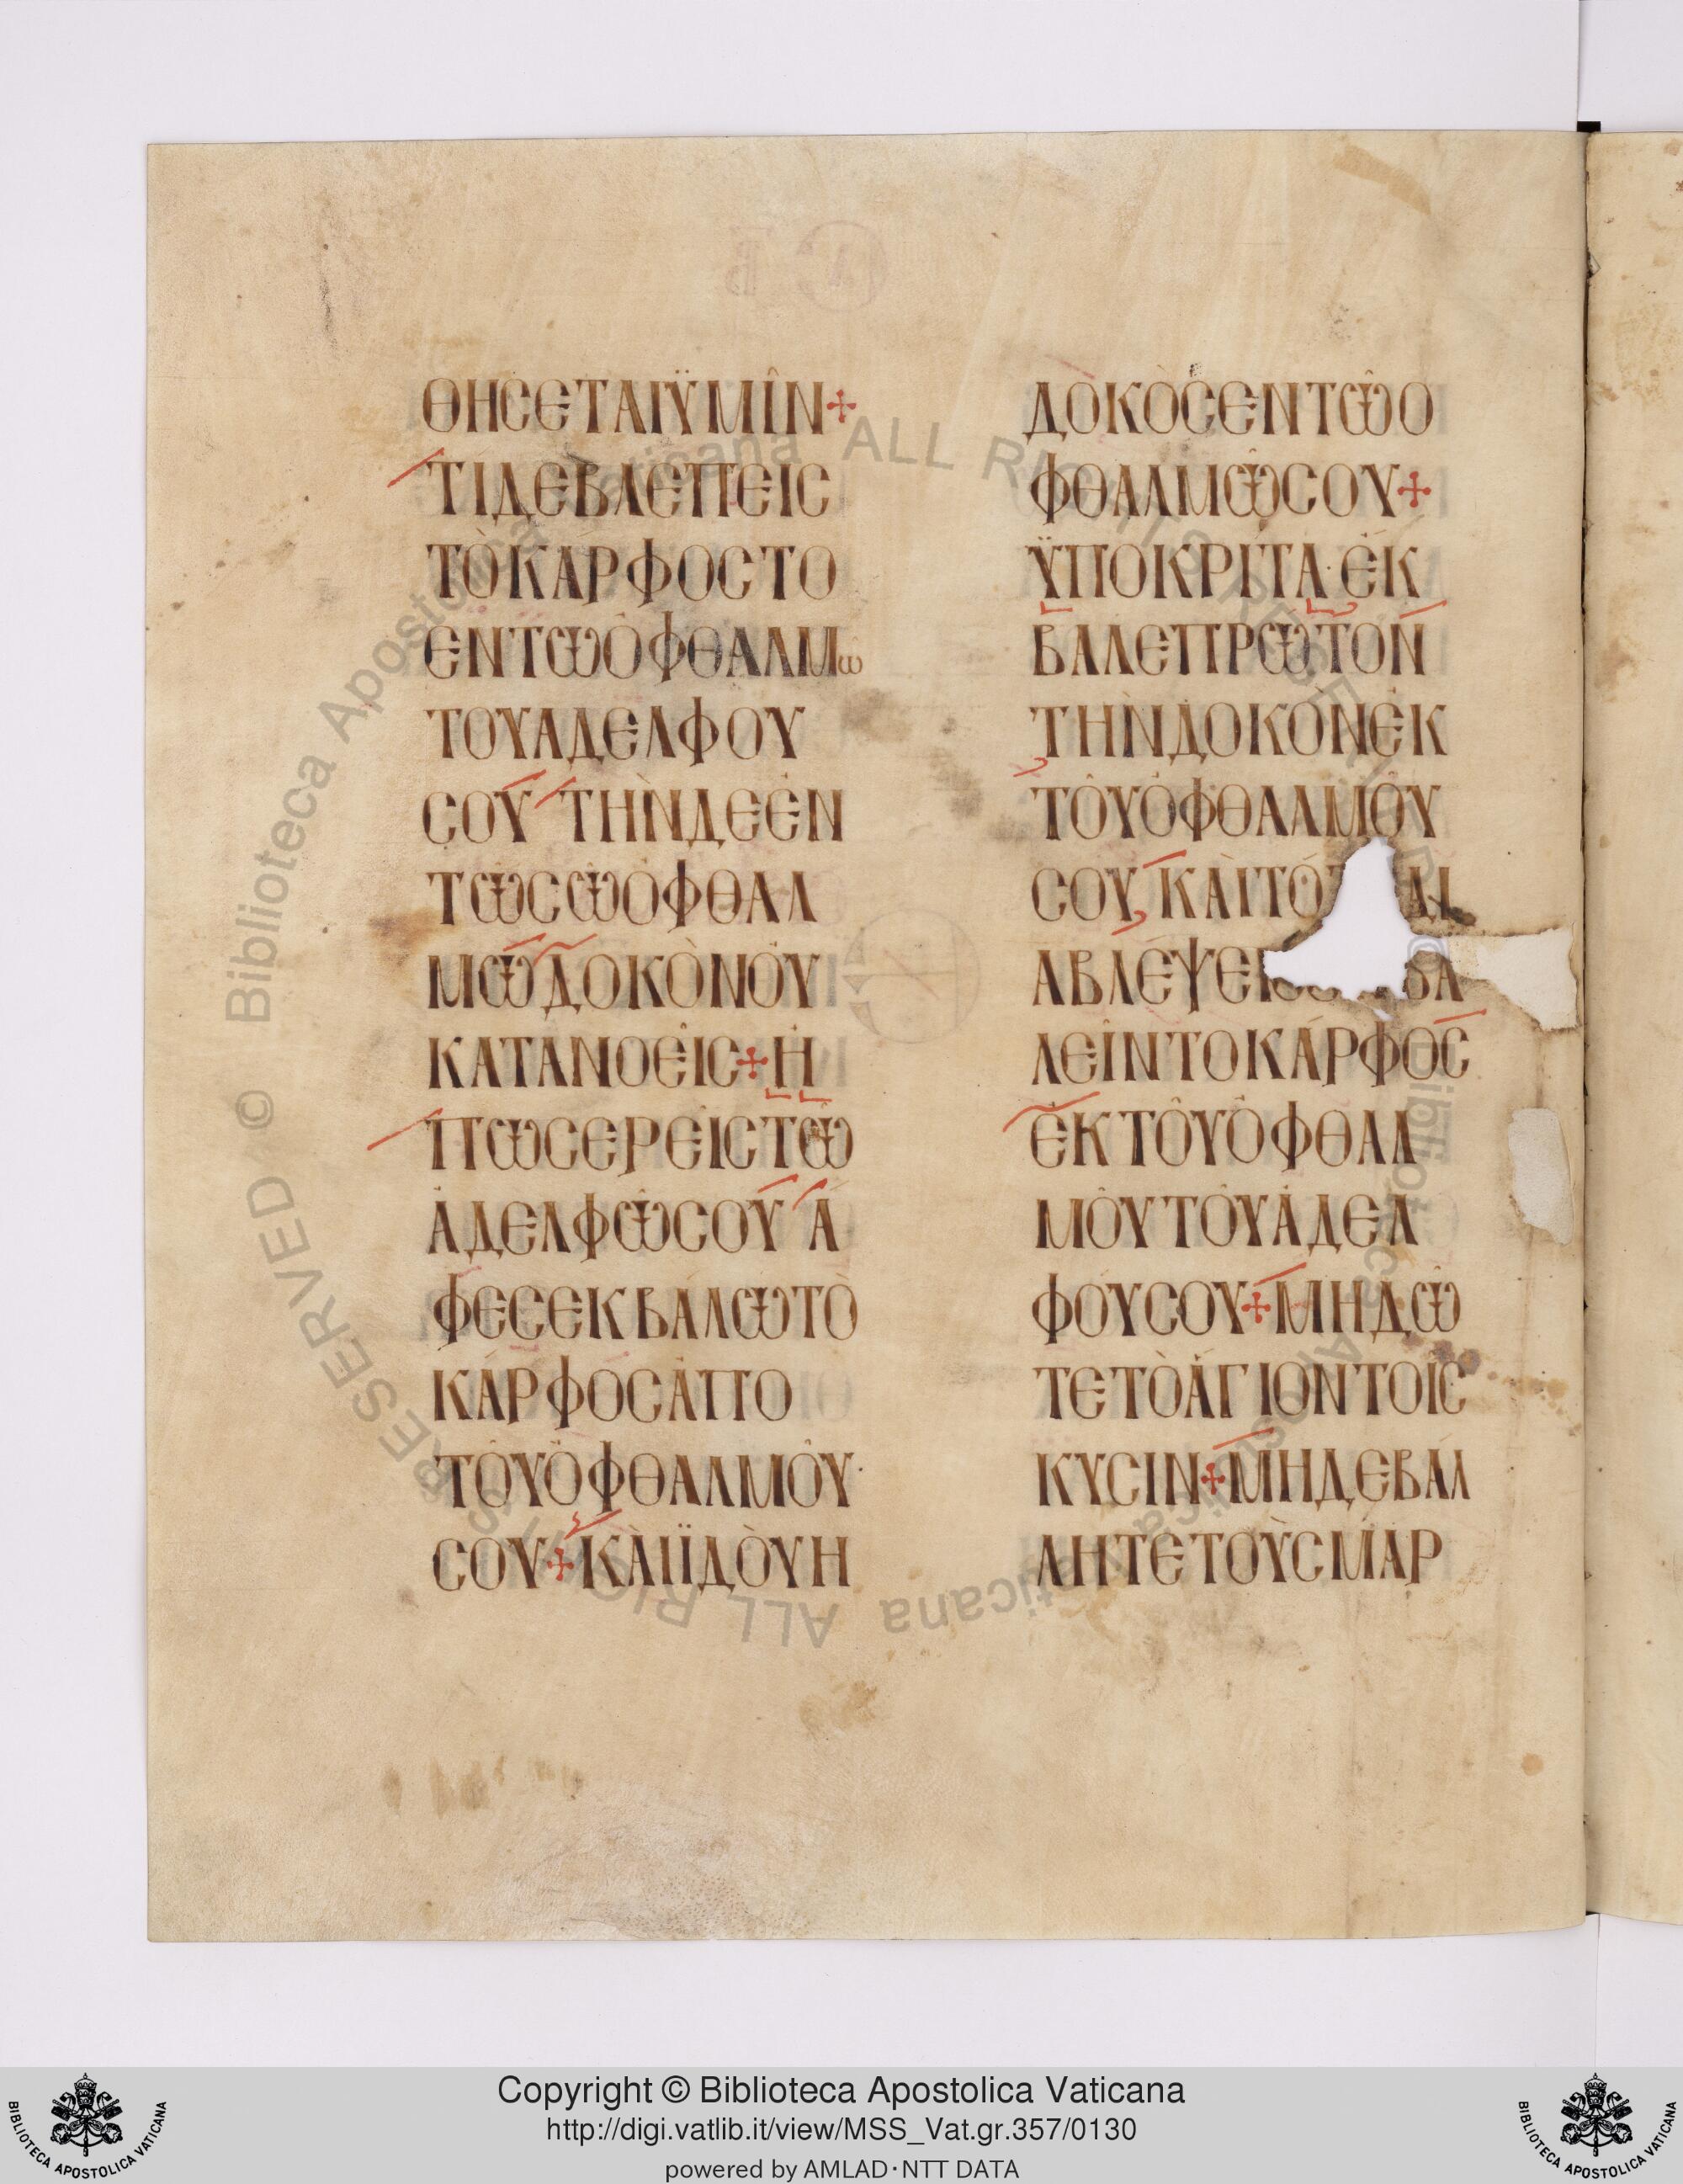 ΘΗΣΕΤΑΙΫΜΙΝ+
ΤΙΔΕΒΛΕΠΕΙΣ
ΤῸΚΆΡΦΟΣΤΟ
ΕΝΤΩΟΦΘΑΛΜω
ΤΟΥΑΔΕΛΦΟΥ
ΣΟΥ ΤΗΝΔΕΕΝ
ΤΩΣΩΟΦΘΑΛ
ΜΩΔΟΚΟΝΟΥ
ΚΑΤΑΝΟΕΙΣ+Η
ΠΩΣΕΡΕΙΣΤΩ
ΑΔΕΛΦΩΣΟΥ Α
ΦΕΣΕΚΒΑΛΩΤΟ
ΚΑΡΦΟΣΑΠΟ
ΤΟΥΟΦΘΑΛΜΟΥ·
ΣΟΥ+ΚΑΙΪΔΟΥΗ
ΔΟΚΟΣΕΝΤΩΟ
ΦΘΑΛΜΩΣΟΥ+
ΫΠΟΚΡΙΤΑ·ΕΚ
ΒΑΛΕΠΡΩΤΟΝ
ΤΗΝΔΟΚΟΝΕΚ
ΤΟΥΟΦΘΑΛΜΟΥ
ΣΟΥ ΚΑΙΤΟ ΔΙ
ΑΒΛΕΨΕΙ ΒΑ
ΛΕΙΝΤΟΚΑΡΦΟΣ
ΕΚΤΟΥΟΦΘΑΛ
ΜΟΥΤΟΥΑΔΕΛ
ΦΟΥΣΟΥ+ΜΗΔΩ
ΤΕΤΟΑΓΙΟΝΤΟΙΣ
ΚΥΣΙΝ+ΜΗΔΕΒΑΛ
ΛΗΤΕΤΟΥΣΜΑΡ
Copyright © Biblioteca Apostolica Vaticana
http://digi.vatlib.it/view/MSS_Vat.gr.357/0130
powered by AMLAD·NTT DATA
BIBLIOTECA APOSTOLICA VATICANA
BIBLIOTECA APOSTOLICA VATICANA